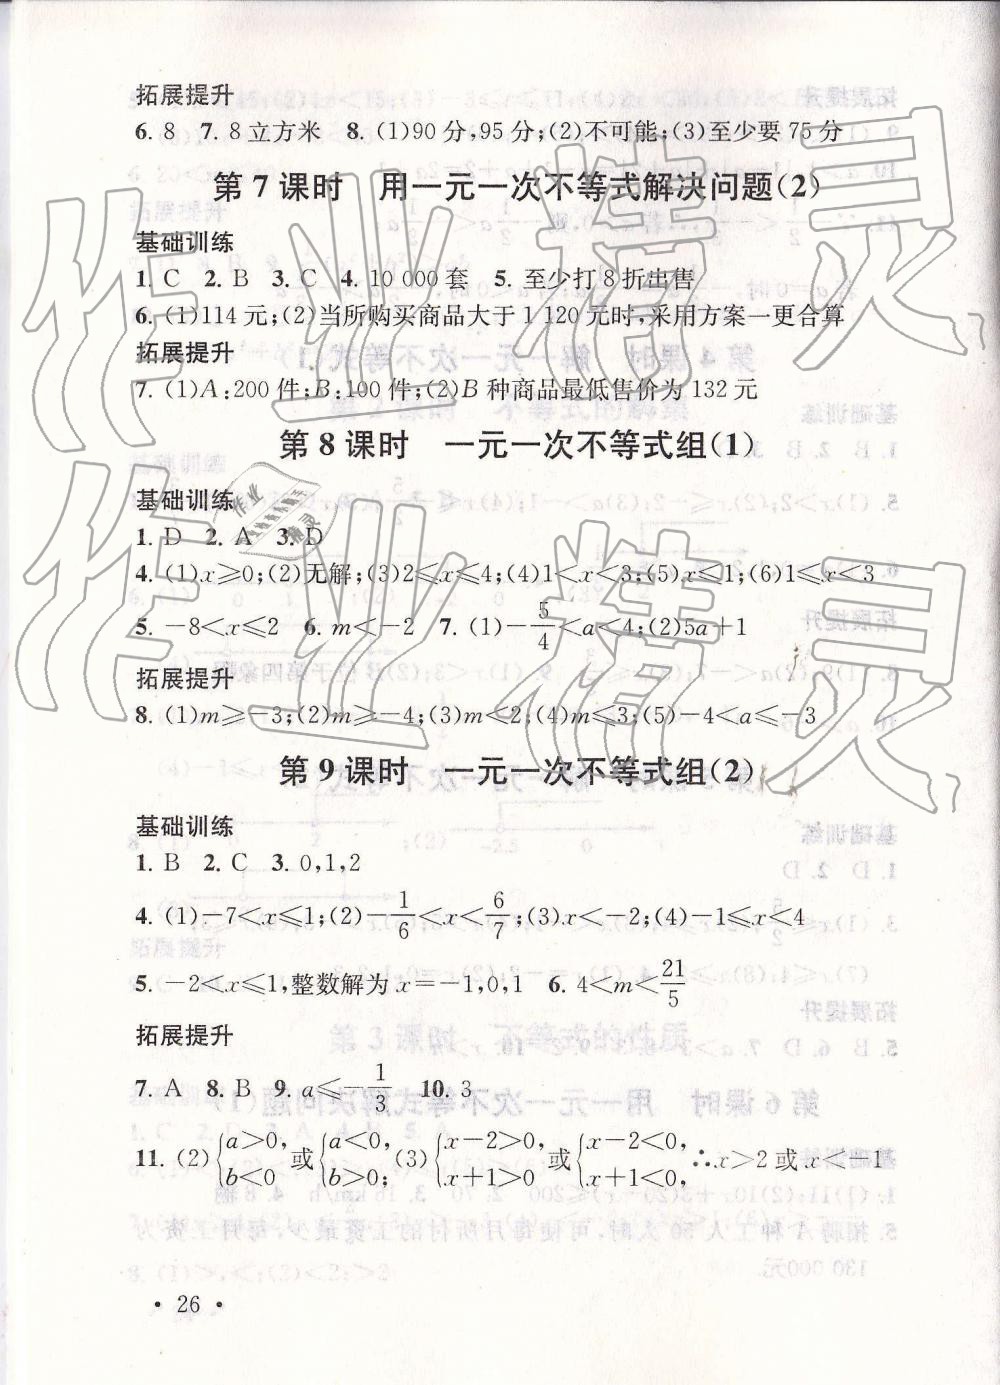 拓展提升
6. 8　7. 8立方米　8. (1)90分,95分;(2)不可能;(3)至少要75分
第7课时　用一元一次不等式解决问题(2)
基础训练
1. C　2. B　3. C　4. 10 000套　5. 至少打8折出售
6. (1)114元;(2)当所购买商品大于1 120元时,采用方案一更合算
拓展提升
7. (1)A:200件;B:100件;(2)B种商品最低售价为132元
第8课时　一元一次不等式组(1)
基础训练
1. D　2. A　3. D
4. (1)x≥0;(2)无解;(3)2≤x≤4;(4)1<x<3;(5)x≤1;(6)1≤x<3
5. -8<x≤2　6. m<-2　7. (1)-5/4<a<4;(2)5a+1
拓展提升
8. (1)m≥-3;(2)m≥-4;(3)m<2;(4)m≤3;(5)-4<a≤-3
第9课时　一元一次不等式组(2)
基础训练
1. B　2. C　3. 0,1,2
4. (1)-7<x≤1;(2)-1/6<x<6/7;(3)x<-2;(4)-1≤x<4
5. -2<x≤1,整数解为x=-1,0,1　6. 4<m<21/5
拓展提升
7. A　8. B　9. a≤-1/3　10. 3
11. (2){a>0, b<0 或{a<0, b>0; (3){x-2>0, x+1>0 或{x-2<0, x+1<0, ∴x>2或x<-1
· 26 ·
作业精灵
作业精灵